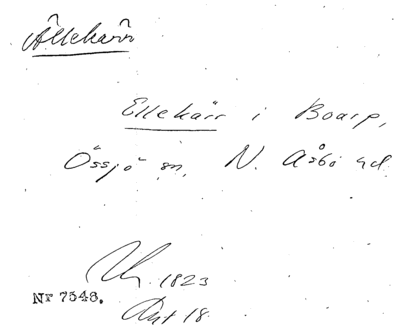 Ällekärr
Ellekärr i Boarp,
Össjö sn, N. Åsbo hd.
1823
Nr 7548.
Akt 18.